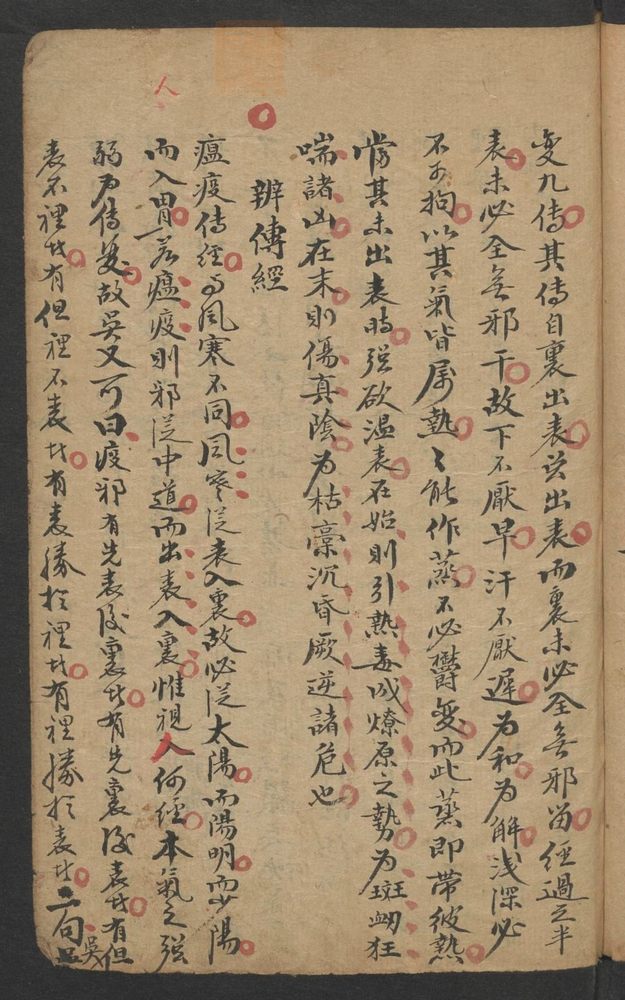 变九傳其傳自裏出表岂出表而裏未必全無邪留經過之半
表未必全無邪干故下不厭早汗不厭遲為和為解淺深必
不可拘以其氣皆属熱〻能作蒸不必鬱变而此蒸即带彼熱
當其未出表時强欲温表在始則引熱毒成燎原之勢为斑衂狂
喘諸凶在末則傷真陰为枯槀沉昏厥逆諸危也
辨傳經
瘟疫傳經与風寒不同風寒従表入裏故必従太陽而陽明而少陽
而入胃若瘟疫則邪従中道而出表入裏惟視人何經本氣之强
弱为傳变故吳又可曰疫邪有先表後裏者有先裏後表者有但
表不裡者有但裡不表者有表勝於裡者有裡勝於表者二句吳